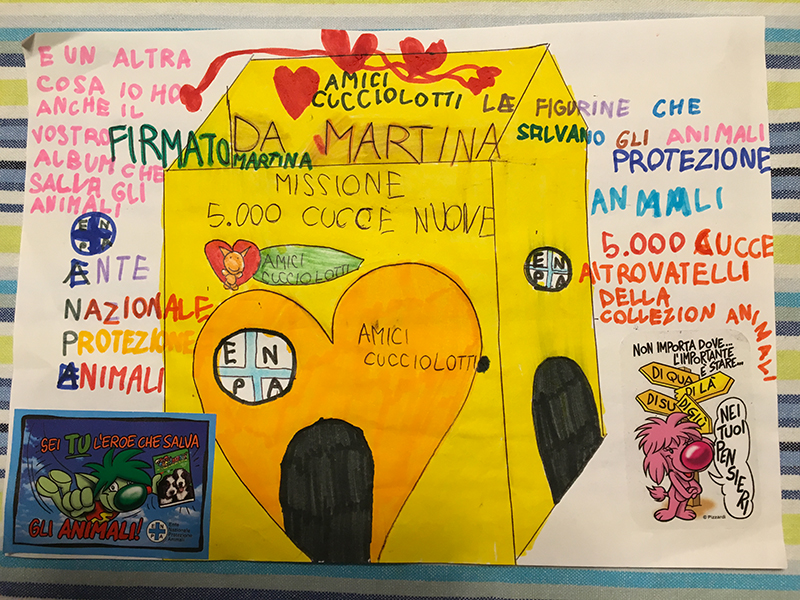 E UN ALTRA
COSA IO HO
ANCHE IL
VOSTRO
ALBUM CHE
SALVA GLI
ANIMALI
ENPA
ENTE
NAZIONALE
PROTEZIONE
ANIMALI
AMICI
CUCCIOLOTTI
FIRMATO DA MARTINA
MARTINA
MISSIONE
5.000 CUCCE NUOVE
AMICI
CUCCIOLOTTI
AMICI
CUCCIOLOTTI
EN
PA
EN
PA
LE FIGURINE CHE
SALVANO GLI ANIMALI
PROTEZIONE
ANIMALI
5.000 CUCCE
AI TROVATELLI
DELLA
COLLEZION ANIMALI
SEI TU L'EROE CHE SALVA
GLI ANIMALI!
Ente
Nazionale
Protezione
Animali
NON IMPORTA DOVE...
L'IMPORTANTE
È STARE...
DI QUA
E DI LÀ
DI SU
E DI GIÙ
NEI
TUOI
PENSIERI
© Pizzardi